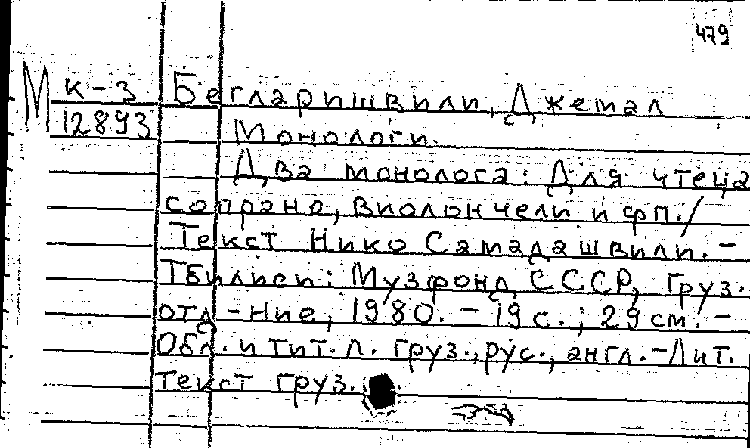 479
М К-3 Бегларишвили, Джемал
12893 Монологи.
Два монолога: Для чтеца
сопрано, виолончели и фп./
Текст Нико Самадашвили. -
Тбилиси: Музфонд СССР, Груз.
отд-ние, 1980. - 19 с.; 29 см. -
Обл. и тит. л. груз., рус., англ. - Лит.
текст груз.